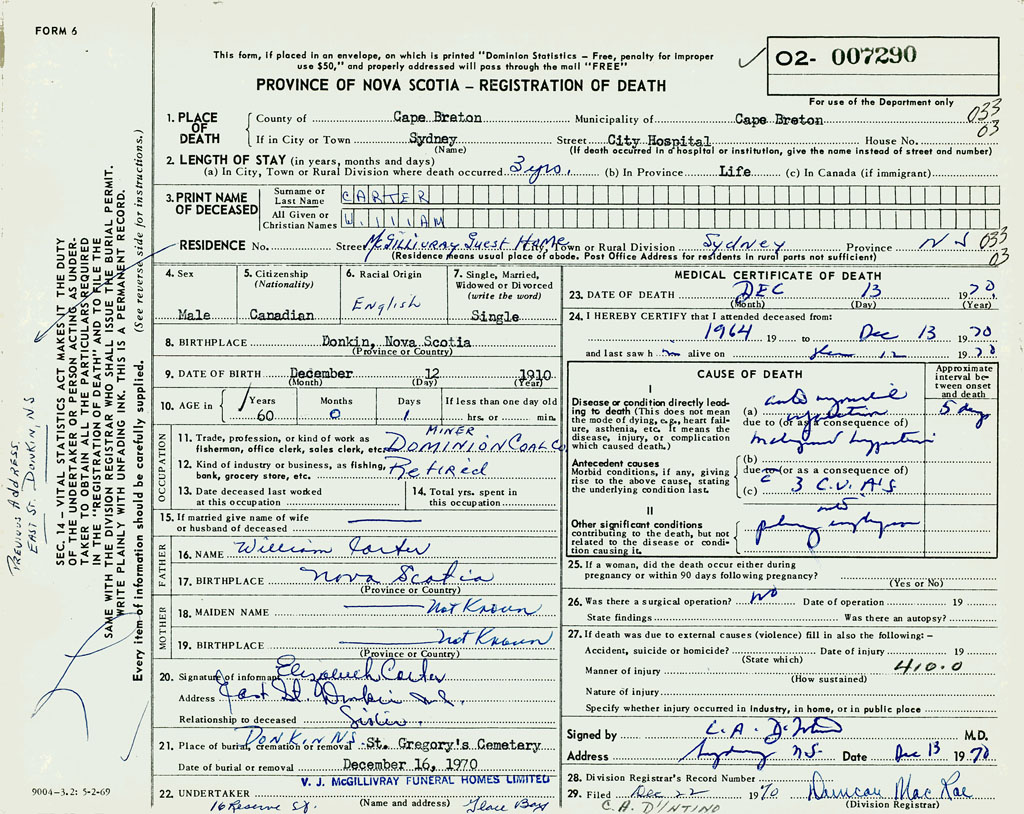 FORM 6
This form, if placed in an envelope, on which is printed "Dominion Statistics – Free, penalty for improper
use $50," and properly addressed will pass through the mail "FREE"
PROVINCE OF NOVA SCOTIA – REGISTRATION OF DEATH
02- 007290
For use of the Department only
033
03
1. PLACE OF DEATH
County of Cape Breton Municipality of Cape Breton
If in City or Town Sydney Street City Hospital House No.
(Name) (If death occurred in a hospital or institution, give the name instead of street and number)
2. LENGTH OF STAY (in years, months and days)
(a) In City, Town or Rural Division where death occurred 3 yrs. (b) In Province Life (c) In Canada (if immigrant)
3. PRINT NAME OF DECEASED
Surname or Last Name CARTER
All Given or Christian Names WILLIAM
RESIDENCE No. Street McGillivray Guest Home City, Town or Rural Division Sydney Province NS 033
03
(Residence means usual place of abode. Post Office Address for residents in rural parts not sufficient)
4. Sex
Male
5. Citizenship
(Nationality)
Canadian
6. Racial Origin
English
7. Single, Married,
Widowed or Divorced
(write the word)
Single
8. BIRTHPLACE Donkin, Nova Scotia
(Province or Country)
9. DATE OF BIRTH December 12 1910
(Month) (Day) (Year)
10. AGE in Years 60 Months 0 Days 1 If less than one day old
hrs. or min.
OCCUPATION
11. Trade, profession, or kind of work as
fisherman, office clerk, sales clerk, etc. MINER
DOMINION COAL CO
12. Kind of industry or business, as fishing,
bank, grocery store, etc. Retired
13. Date deceased last worked
at this occupation
14. Total yrs. spent in
this occupation
15. If married give name of wife
or husband of deceased
FATHER
16. NAME William Carter
17. BIRTHPLACE Nova Scotia
(Province or Country)
MOTHER
18. MAIDEN NAME Not Known
19. BIRTHPLACE Not Known
(Province or Country)
20. Signature of informant Elizabeth Carter
Address East St. Donkin N.S.
Relationship to deceased Sister.
21. Place of burial, cremation or removal DONKIN NS St. Gregory's Cemetery
Date of burial or removal December 16, 1970
V. J. McGILLIVRAY FUNERAL HOMES LIMITED
22. UNDERTAKER
16 Reserve St. (Name and address) Glace Bay
MEDICAL CERTIFICATE OF DEATH
23. DATE OF DEATH DEC 13 1970.
(Month) (Day) (Year)
24. I HEREBY CERTIFY that I attended deceased from:
1964 19 to Dec 13 1970
and last saw him alive on 12 1970
CAUSE OF DEATH
Approximate
interval between onset
and death
I
Disease or condition directly leading to death (This does not mean
the mode of dying, e.g., heart failure, asthenia, etc. It means the
disease, injury, or complication
which caused death.)
(a) 5 days
due to (or as a consequence of)
Antecedent causes
Morbid conditions, if any, giving
rise to the above cause, stating
the underlying condition last.
(b)
due to (or as a consequence of)
(c) 3 C.V.A's
II
Other significant conditions
contributing to the death, but not
related to the disease or condition causing it.
25. If a woman, did the death occur either during
pregnancy or within 90 days following pregnancy?
(Yes or No)
26. Was there a surgical operation? NO Date of operation 19
State findings Was there an autopsy?
27. If death was due to external causes (violence) fill in also the following: –
Accident, suicide or homicide? Date of injury 19
(State which)
Manner of injury 410.0
(How sustained)
Nature of injury
Specify whether injury occurred in industry, in home, or in public place
Signed by C.A. M.D.
Address Sydney N.S. Date Dec 13 1970
28. Division Registrar's Record Number
29. Filed Dec 22 1970 Duncan Mac Rae
(Division Registrar)
C.A. D'INTINO
9004-3.2: 5-2-69
SEC. 14 – VITAL STATISTICS ACT MAKES IT THE DUTY
OF THE UNDERTAKER OR PERSON ACTING AS UNDERTAKER TO OBTAIN ALL THE PARTICULARS REQUIRED
IN THE "REGISTRATION OF DEATH" AND TO FILE THE
SAME WITH THE DIVISION REGISTRAR WHO SHALL ISSUE THE BURIAL PERMIT.
WRITE PLAINLY WITH UNFADING INK. THIS IS A PERMANENT RECORD.
Every item of information should be carefully supplied. (See reverse side for instructions.)
PREVIOUS ADDRESS
EAST ST. DONKIN, NS